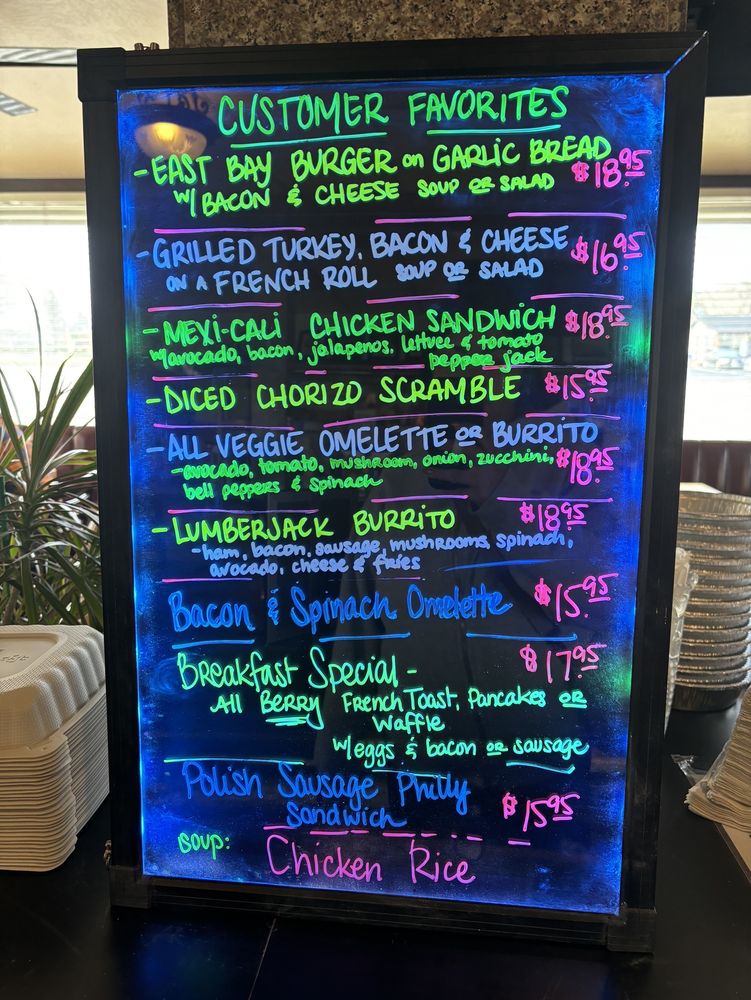 CUSTOMER FAVORITES
-EAST BAY BURGER on GARLIC BREAD
w/ BACON & CHEESE SOUP OR SALAD $18.95
-GRILLED TURKEY, BACON & CHEESE
ON A FRENCH ROLL SOUP OR SALAD $16.95
-MEXI-CALI CHICKEN SANDWICH $18.95
w/avocado, bacon, jalapenos, lettuce & tomato
pepper jack
-DICED CHORIZO SCRAMBLE $15.95
-ALL VEGGIE OMELETTE OR BURRITO
-avocado, tomato, mushroom, onion, zucchini, $18.95
bell peppers & spinach
-LUMBERJACK BURRITO $18.95
-ham, bacon, sausage, mushrooms, spinach,
avocado, cheese & fries
Bacon & Spinach Omelette $15.95
Breakfast Special - $17.95
All BERRY French Toast, Pancakes OR
Waffle
w/eggs & bacon OR sausage
Polish Sausage Philly
Sandwich $15.95
Soup: Chicken Rice